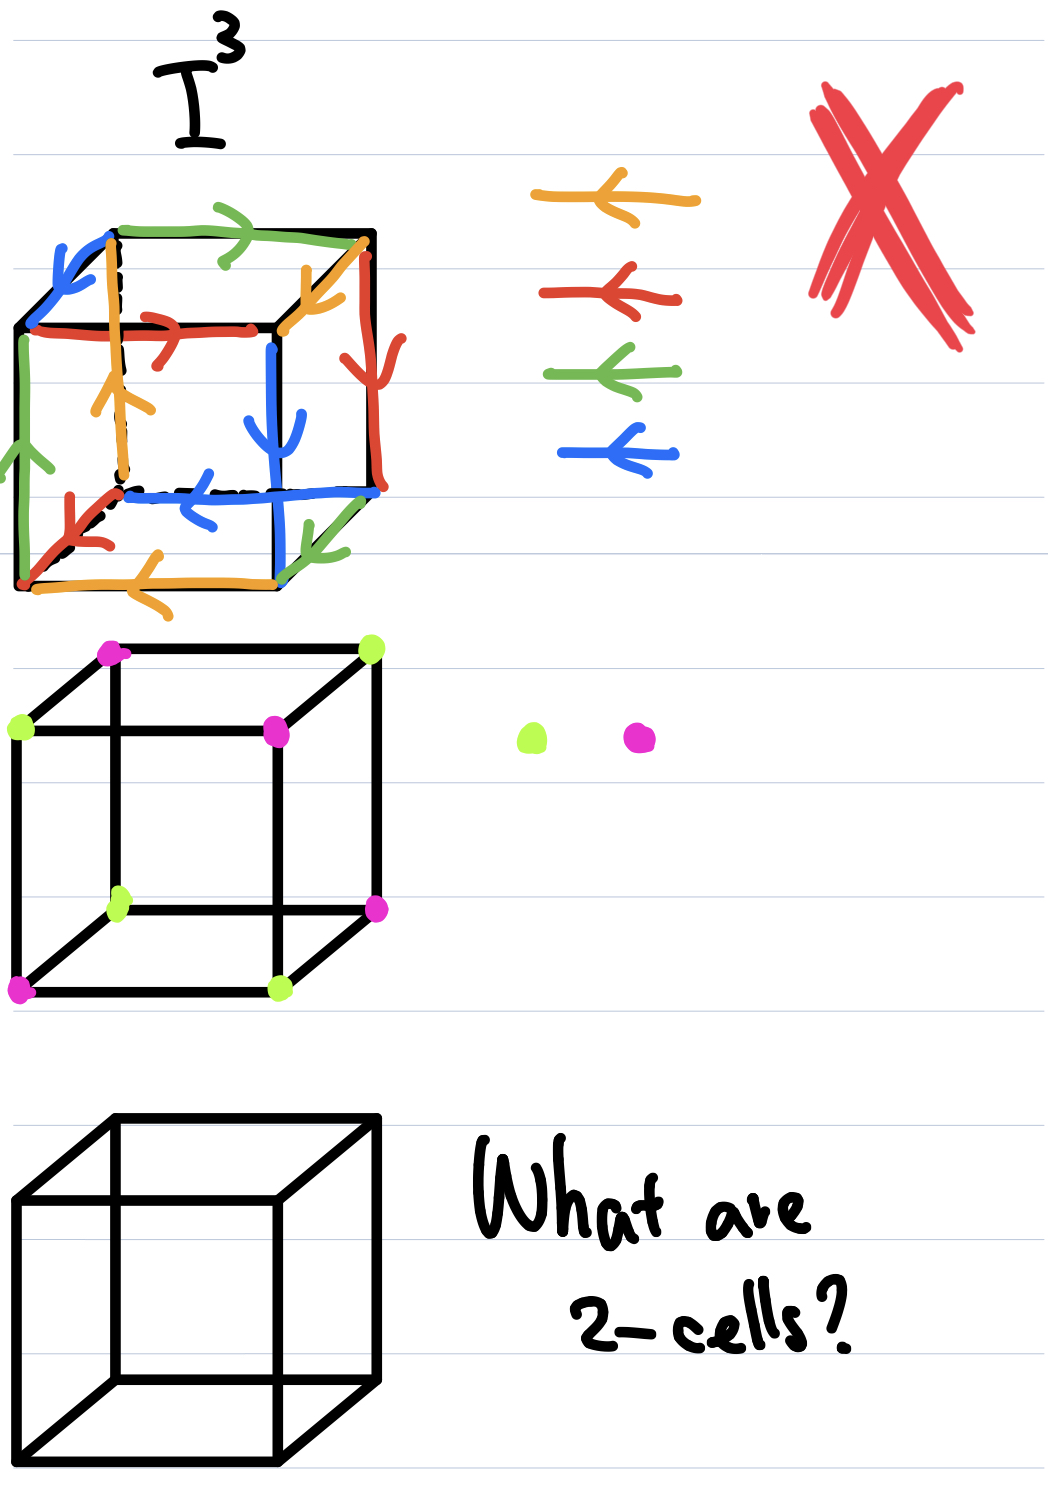 I³
X
What are
2-cells?